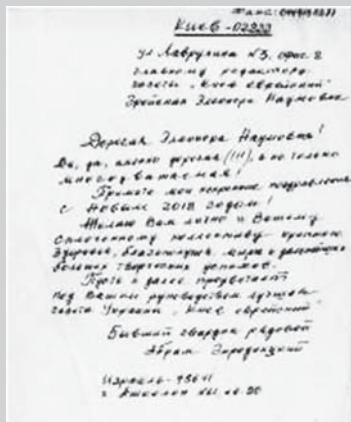 Киев - 02222
главному редактору
газеты "Киев еврейский"
Дорогая Элеонора Наумовна!
Да, да, именно дорогая (!!!), а не только
многоуважаемая!
Примите мои искренние поздравления
с Новым 2018 годом!
Желаю Вам лично и Вашему
сплоченному коллективу крепкого
здоровья, благополучия, мира и дальнейших
больших творческих успехов.
Пусть и далее процветает
под Вашим руководством лучшая
газета Украины "Киев еврейский"
Бывший гвардии рядовой
Абрам
Израиль -
г. Ашкелон